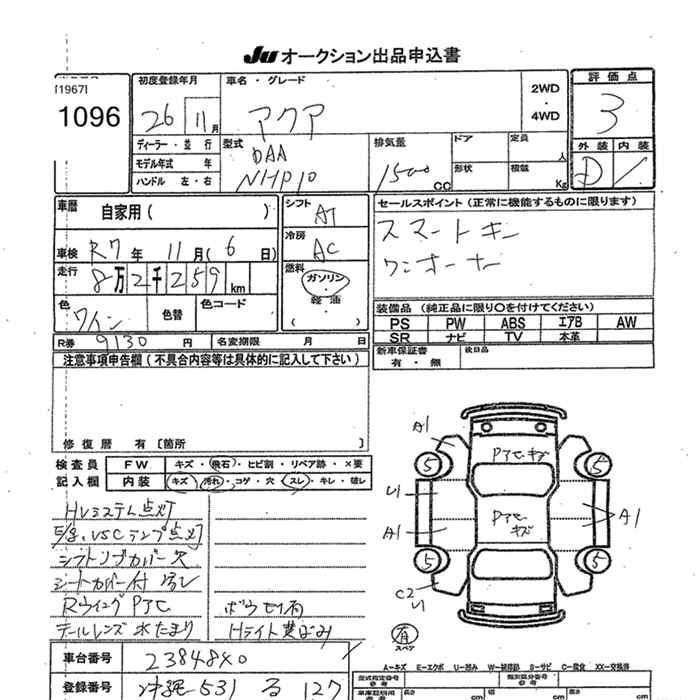 Ju オークション出品申込書
[1967]
1096
初度登録年月
26 11月
ディーラー・並行
モデル年式 年
ハンドル 左・右
車名・グレード
アクア
2WD
・
4WD
評価点
3
外装 内装
D
型式
DAA
NHP10
排気量
1500 CC
ドア
定員 人
形状
積載 Kg
車歴
自家用( )
車検 R7年 11月(6日)
走行
8万2千259 km
色
ワイン
色替
色コード
R券 9130 円
名変期限 月 日
シフト
AT
冷房
AC
燃料
ガソリン
軽油
( )
セールスポイント(正常に機能するものに限ります)
スマートキー
ワンオーナー
装備品(純正品に限り〇を付けてください)
PS PW ABS エアB AW
SR ナビ TV 本革
新車保証書
有・無
後日品
注意事項申告欄(不具合内容等は具体的に記入して下さい)
修復歴 有 [箇所 ]
検査員
記入欄
FW キズ・飛石・ヒビ割・リペア跡・×要
内装 キズ・汚れ・コゲ・穴・スレ・キレ・破レ
HVシステム点灯
VSCランプ点灯
シフトノブカバー欠
シートカバー付
Rウイング Pアセ
テールレンズ 水たまり
ボウセイ有
Hライト黄ばみ
A1
Pアセ・キズ
5 5
U1
A1
Pアセ・キズ
A1
5 5
C2
U1
有
スペア
A―キズ E―エクボ U―凹み W―補修跡 S―サビ C―腐蝕 XX―交換済
車台番号
登録番号 沖縄 531 る 127
型式指定番号
参考
類別区分番号
参考
長さ cm
幅 cm
高さ cm